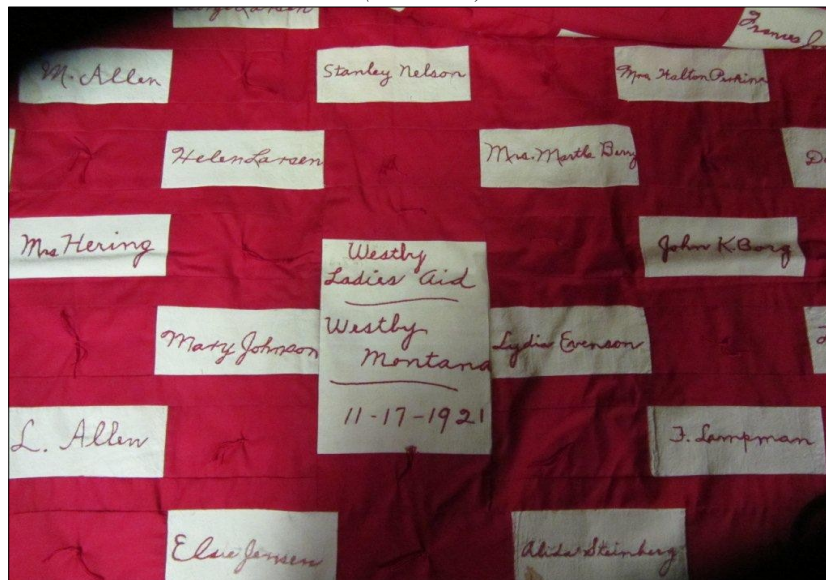 Larsen
Frances
M. Allen
Stanley Nelson
Mrs Halton Perkins
Helen Larsen
Mrs. Martha Berg
Mrs Hering
John K. Borg
Westby
Ladies' Aid
Westby
Montana
11-17-1921
Mary Johnson
Lydia Evenson
L. Allen
F. Lampman
Elsie Jensen
Alida Steinberg